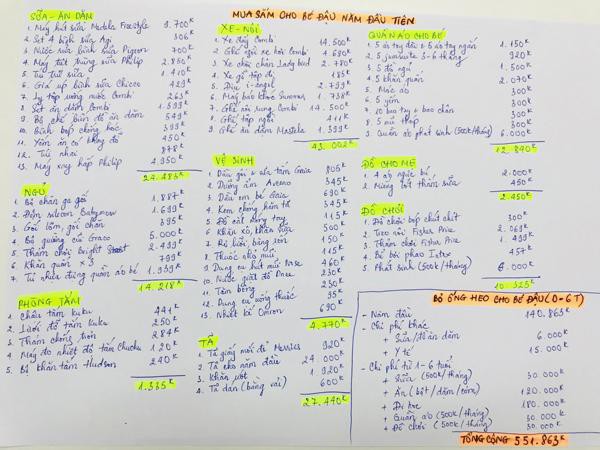 MUA SẮM CHO BÉ ĐẬU NĂM ĐẦU TIÊN
SỮA - ĂN DẶM
1. Máy hút sữa Medela Freestyle 9.700K
2. Set 4 bình sữa Agi 306K
3. Nước rửa bình sữa Pigeon 700K
4. Máy tiệt trùng sữa Philip 2.850K
5. Túi trữ sữa 1.410K
6. Giá úp bình sữa Chicco 429K
7. Ly tập uống nước Combi 263K
8. Set ăn dặm Combi 1.399K
9. Bộ chế biến đồ ăn dặm 549K
10. Bình bóp chống hóc 399K
11. Yếm ăn có máng đỡ 450K
12. Túi nhai 878K
13. Máy xay hấp Philip 4.950K
24.283K
NGỦ
1. Bộ chăn ga gối 1.887K
2. Đệm silicon Babymow 1.699K
3. Gối lõm, gối chặn 395K
4. Bộ giường cũi Graco 5.000K
5. Thảm chơi Bright Start 2.499K
6. Khăn quấn x3 799K
7. Tủ nhựa đựng quần áo bé 1.939K
14.218K
PHÒNG TẮM
1. Chậu tắm Kuku 441K
2. Lưới đỡ tắm Kuku 250K
3. Thảm chống trơn 284K
4. Máy đo nhiệt độ tắm Chuchu 120K
5. Bộ khăn tắm Hudson 240K
1.335K
XE - NÔI
1. Xe đẩy Combi 14.500K
2. Ghế ngồi xe hơi Combi 4.680K
3. Xe chòi chân Ladybird 2.780K
4. Xe gỗ tập đi 185K
5. Địu i-angel 2.799K
6. Máy báo khóc Summer 1.738K
7. Ghế ăn rung Combi 14.500K
8. Ghế tập ngồi 411K
9. Ghế ăn dặm Mastela 1.399K
43.002K
VỆ SINH
1. Dầu gội & sữa tắm Gaia 805K
2. Dưỡng ẩm Aveeno 345K
3. Dầu em bé Gaia 690K
4. Kem chống hăm tã 345K
5. Đồ cắt móng tay 115K
6. Khăn xô, khăn sữa 500K
7. Rơ lưỡi, băng rốn 150K
8. Thuốc nhỏ mũi 115K
9. Dụng cụ hút mũi Nose 460K
10. Nước giặt đồ Dnee 230K
11. Tăm bông 230K
12. Dụng cụ uống thuốc 95K
13. Nhiệt kế Omron 690K
4.770K
TÃ
1. Tã giấy mới đẻ Merries 920K
2. Tã cho năm đầu 24.000K
3. Khăn ướt 1.920K
4. Tã dán (bằng vải) 600K
27.440K
QUẦN ÁO CHO BÉ
1. 5 áo tay dài & 5 áo tay ngắn 1.150K
2. 5 jumsuite 3-6 tháng 920K
3. 5 đồ ngủ 1.500K
4. 5 khăn quấn 2.070K
5. Móc áo 300K
6. 5 yếm 300K
7. 10 bao tay & bao chân 300K
8. 5 mũ thóp 300K
9. Quần áo phát sinh (500K/tháng) 6.000K
12.840K
ĐỒ CHO MẸ
1. 4 áo ngực bú 2.000K
2. Miếng lót thấm sữa 450K
2.450K
ĐỒ CHƠI
1. Đồ chơi bóp chút chít 300K
2. Treo nôi Fisher Price 2.069K
3. Thảm chơi Fisher Price 1.499K
4. Bể bơi phao Intex 457K
5. Phát sinh (500K/tháng) 6.000K
10.325K
BỎ ỐNG HEO CHO BÉ ĐẬU (0-6T)
- Năm đầu 140.863K
- Chi phí khác
+ Sữa/đồ ăn dặm 6.000K
+ Y tế 15.000K
- Chi phí từ 1-6 tuổi
+ Sữa (500K/tháng) 30.000K
+ Ăn (bột/dặm/cơm) 120.000K
+ Đi trẻ 180.000K
+ Quần áo (500K/tháng) 30.000K
+ Đồ chơi (500K/tháng) 30.000K
TỔNG CỘNG 551.863K